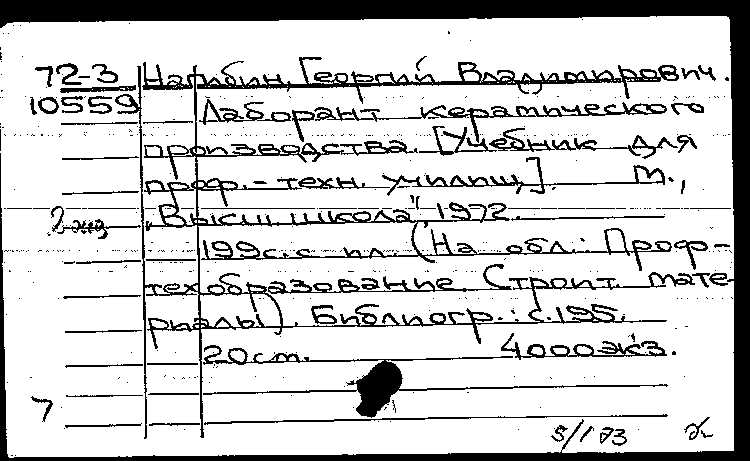 72-3 Нагибин, Георгий Владимирович.
10559 Лаборант керамического
производства. [Учебник для
проф.-техн. училищ]. М.,
2 экз „Высш. школа", 1972.
199 с. с ил. (На обл.: Проф-
техобразование. Строит. мате-
риалы). Библиогр.: с. 195.
20 см. 4000 экз.
7
5/I 73